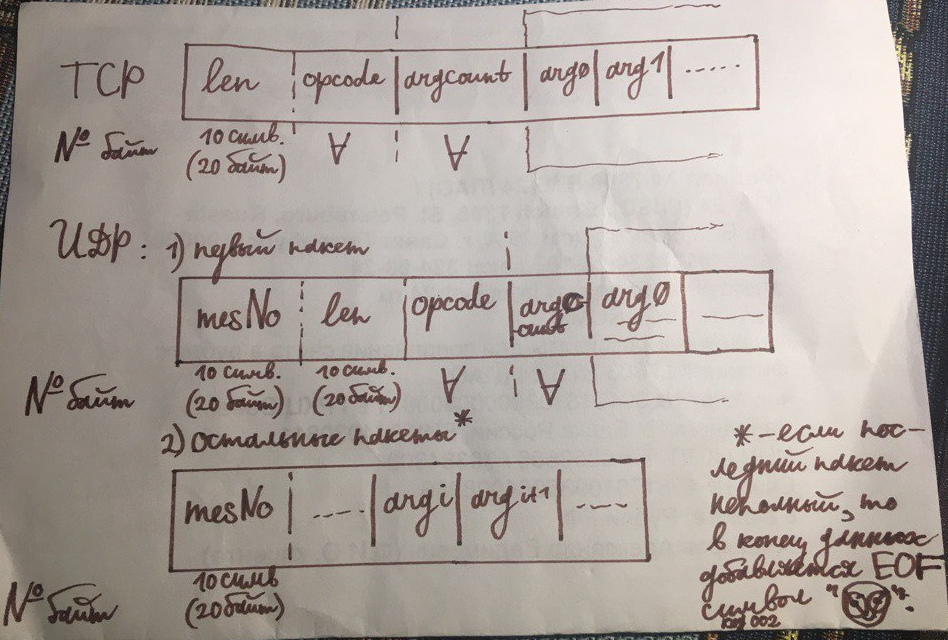 TCP len opcode argcount arg0 arg1 .....
№ байт 10 симв. ∀ ∀
(20 байт)
UДP: 1) первый пакет
mesNo len opcode argcount arg0
№ байт 10 симв. 10 симв. ∀ ∀
(20 байт) (20 байт)
2) остальные пакеты*
mesNo ..... argi argi+1 .....
№ байт 10 симв
(20 байт)
*-если пос-
ледний пакет
неполный, то
в конец данных
добавляется EOF
символ " "
002